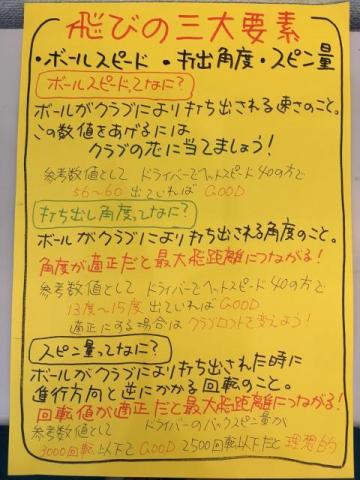 飛びの三大要素
・ボールスピード ・打出角度・スピン量
ボールスピードってなに?
ボールがクラブにより打ち出される速さのこと。
この数値をあげるには
クラブの芯に当てましょう!
参考数値として ドライバーでヘッドスピード40の方で
56~60 出ていれば GOOD
打ち出し角度ってなに?
ボールがクラブにより打ち出される角度のこと。
角度が適正だと最大飛距離につながる!
参考数値として ドライバーでヘットスピード40の方で
13度~15度 出ていれば GOOD
適正にする場合は クラブロフトを変えよう!
スピン量ってなに?
ボールがクラブにより打ち出された時に
進行方向と逆にかかる回転のこと。
回転値が適正だと最大飛距離につながる!
参考数値として ドライバーのバックスピン量が
3000回転以下で GOOD 2500回転以下だと理想的